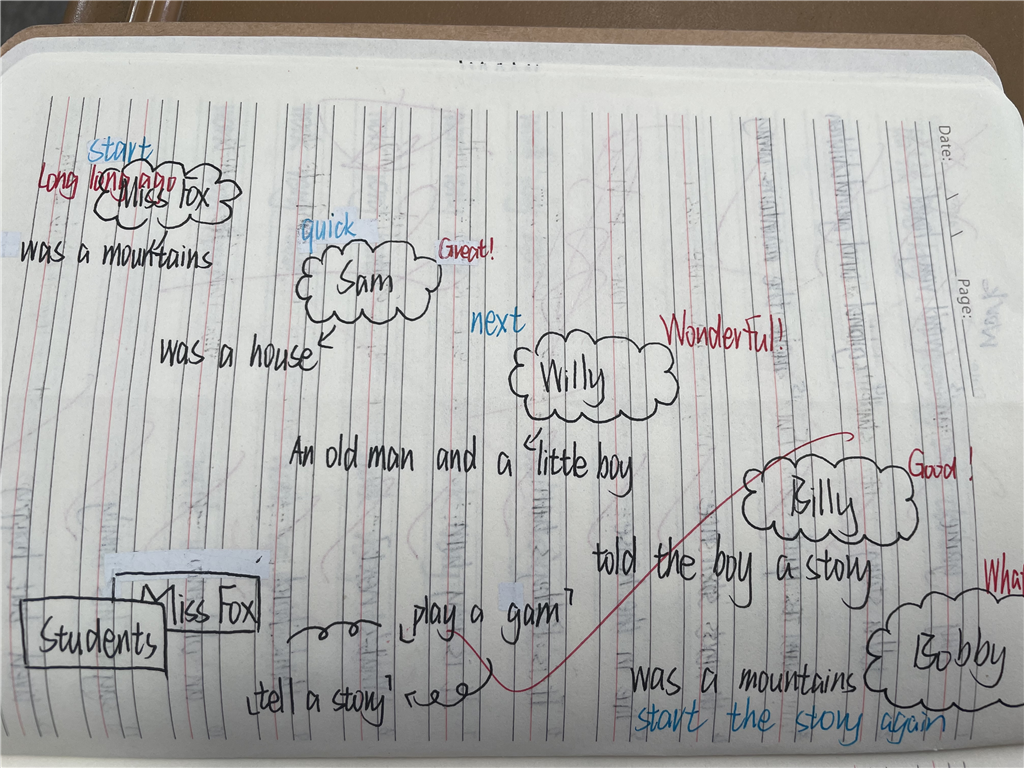 start
Long long ago
Miss Fox
was a mountains
quick
Sam
Great!
was a house
next
Willy
Wonderful!
An old man and a little boy
Billy
Good!
told the boy a story
What
Bobby
was a mountains
start the story again
Miss Fox
Students
play a gam
tell a story
Date:
Page: